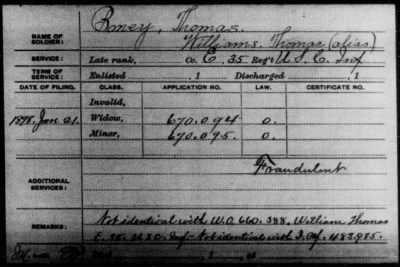 Boney, Thomas.
NAME OF SOLDIER: Williams, Thomas (alias)
SERVICE: Late rank, Co. E, 35 Reg't U.S.C. Inf
TERM OF SERVICE: Enlisted , 1 Discharged , 1
DATE OF FILING. CLASS. APPLICATION NO. LAW. CERTIFICATE NO.
Invalid,
1898, Jan 21. Widow, 670.094 O.
Minor, 670.095. O.
Fraudulent
ADDITIONAL SERVICES:
REMARKS: Not identical with W.O. 660.388, William Thomas
E. 35. U.S.C. Inf - Not identical with I. Of. 483.985.